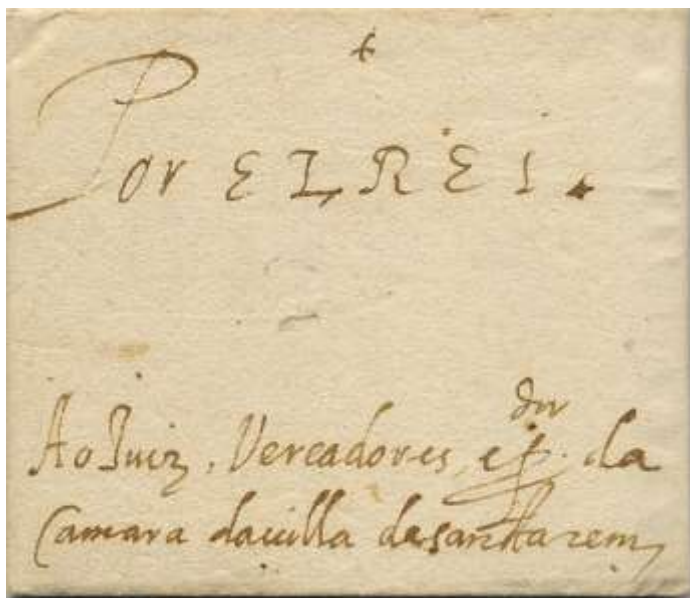 Por ELREI.
Ao Juiz, Vereadores, e p.dor da
Camara da villa de santarem